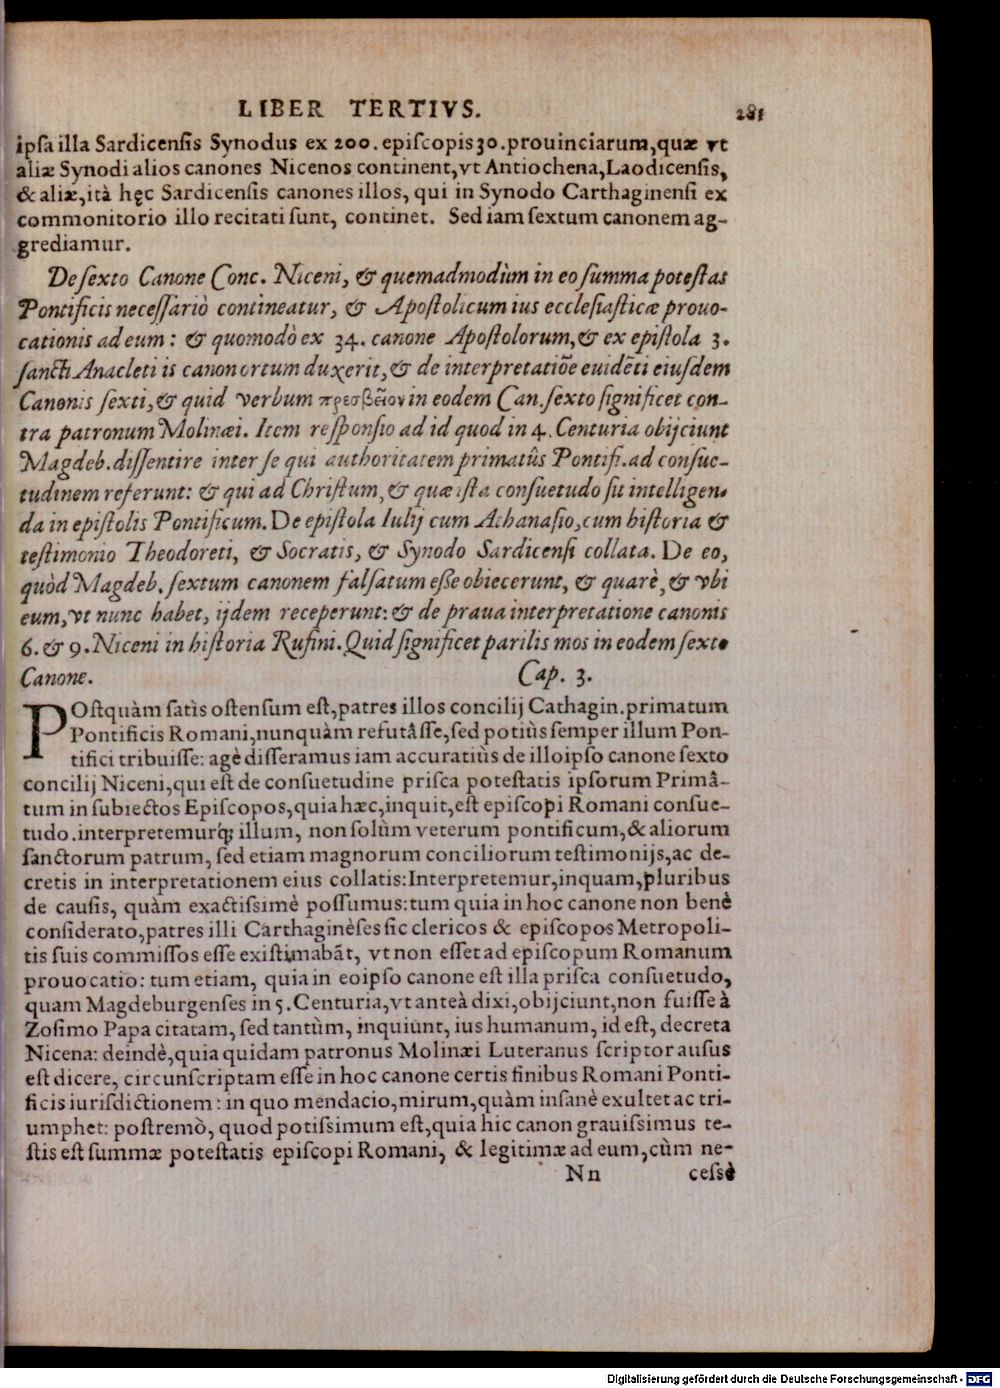 LIBER TERTIVS. 281
ipſa illa Sardicenſis Synodus ex 200. epiſcopis 30. prouinciarum, quæ vt
aliæ Synodi alios canones Nicenos continent, vt Antiochena, Laodicenſis,
& aliæ, ità hęc Sardicenſis canones illos, qui in Synodo Carthaginenſi ex
commonitorio illo recitati ſunt, continet. Sed iam ſextum canonem ag-
grediamur.
De ſexto Canone Conc. Niceni, & quemadmodùm in eo ſumma poteſtas
Pontificis neceſſariò contineatur, & Apoſtolicum ius eccleſiaſticæ prouo-
cationis ad eum: & quomodò ex 34. canone Apoſtolorum, & ex epiſtola 3.
ſancti Anacleti is canon ortum duxerit, & de interpretatiõe euidẽti eiuſdem
Canonis ſexti, & quid verbum πρεσβεῖον in eodem Can. ſexto ſignificet con-
tra patronum Molinæi. Item reſponſio ad id quod in 4. Centuria obijciunt
Magdeb. diſſentire inter ſe qui authoritatem primatûs Pontifi. ad conſue-
tudinem referunt: & qui ad Chriſtum, & quæ iſta conſuetudo ſit intelligen-
da in epiſtolis Pontificum. De epiſtola Iulij cum Athanaſio, cum hiſtoria &
teſtimonio Theodoreti, & Socratis, & Synodo Sardicenſi collata. De eo,
quòd Magdeb. ſextum canonem falſatum eſſe obiecerunt, & quarè, & vbi
eum, vt nunc habet, ijdem receperunt: & de praua interpretatione canonis
6. & 9. Niceni in hiſtoria Rufini. Quid ſignificet parilis mos in eodem ſexto
Canone. Cap. 3.
POſtquàm ſatìs oſtenſum eſt, patres illos concilij Cathagin. primatum
Pontificis Romani, nunquàm refutâſſe, ſed potiùs ſemper illum Pon-
tifici tribuiſſe: agè diſſeramus iam accuratiùs de illo ipſo canone ſexto
concilij Niceni, qui eſt de conſuetudine priſca poteſtatis ipſorum Primâ-
tum in ſubiectos Epiſcopos, quia hæc, inquit, eſt epiſcopi Romani conſue-
tudo. interpretemurq́; illum, non ſolùm veterum pontificum, & aliorum
ſanctorum patrum, ſed etiam magnorum conciliorum teſtimonijs, ac de-
cretis in interpretationem eius collatis: Interpretemur, inquam, pluribus
de cauſis, quàm exactiſſimè poſſumus: tum quia in hoc canone non benè
conſiderato, patres illi Carthaginẽſes ſic clericos & epiſcopos Metropoli-
tis ſuis commiſſos eſſe exiſtimabãt, vt non eſſet ad epiſcopum Romanum
prouocatio: tum etiam, quia in eo ipſo canone eſt illa priſca conſuetudo,
quam Magdeburgenſes in 5. Centuria, vt anteà dixi, obijciunt, non fuiſſe à
Zoſimo Papa citatam, ſed tantùm, inquiunt, ius humanum, id eſt, decreta
Nicena: deindè, quia quidam patronus Molinæi Luteranus ſcriptor auſus
eſt dicere, circunſcriptam eſſe in hoc canone certis finibus Romani Ponti-
ficis iuriſdictionem: in quo mendacio, mirum, quàm inſanè exultet ac tri-
umphet: poſtremò, quod potiſsimum eſt, quia hic canon grauiſsimus te-
ſtis eſt ſummæ poteſtatis epiſcopi Romani, & legitimæ ad eum, cùm ne-
Nn ceſsè
Digitalisierung gefördert durch die Deutsche Forschungsgemeinschaft - DFG